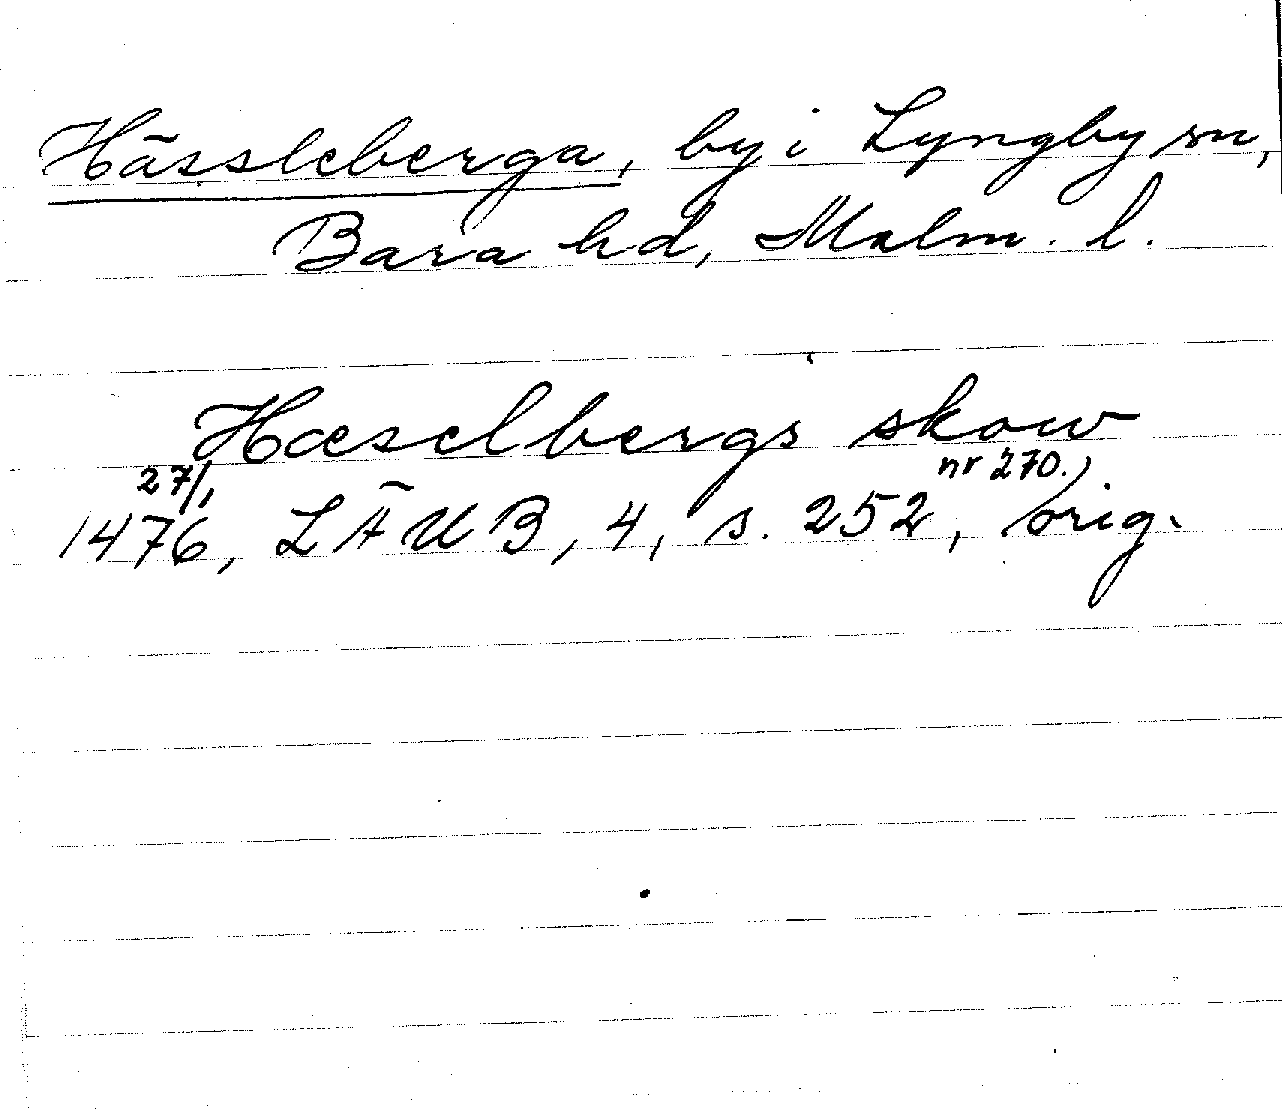 Hässleberga, by i Lyngby sn,
Bara hd, Malm. l.
Hæselbergs skow
27/1 nr 270.,
1476, LÄUB, 4, s. 252, orig.